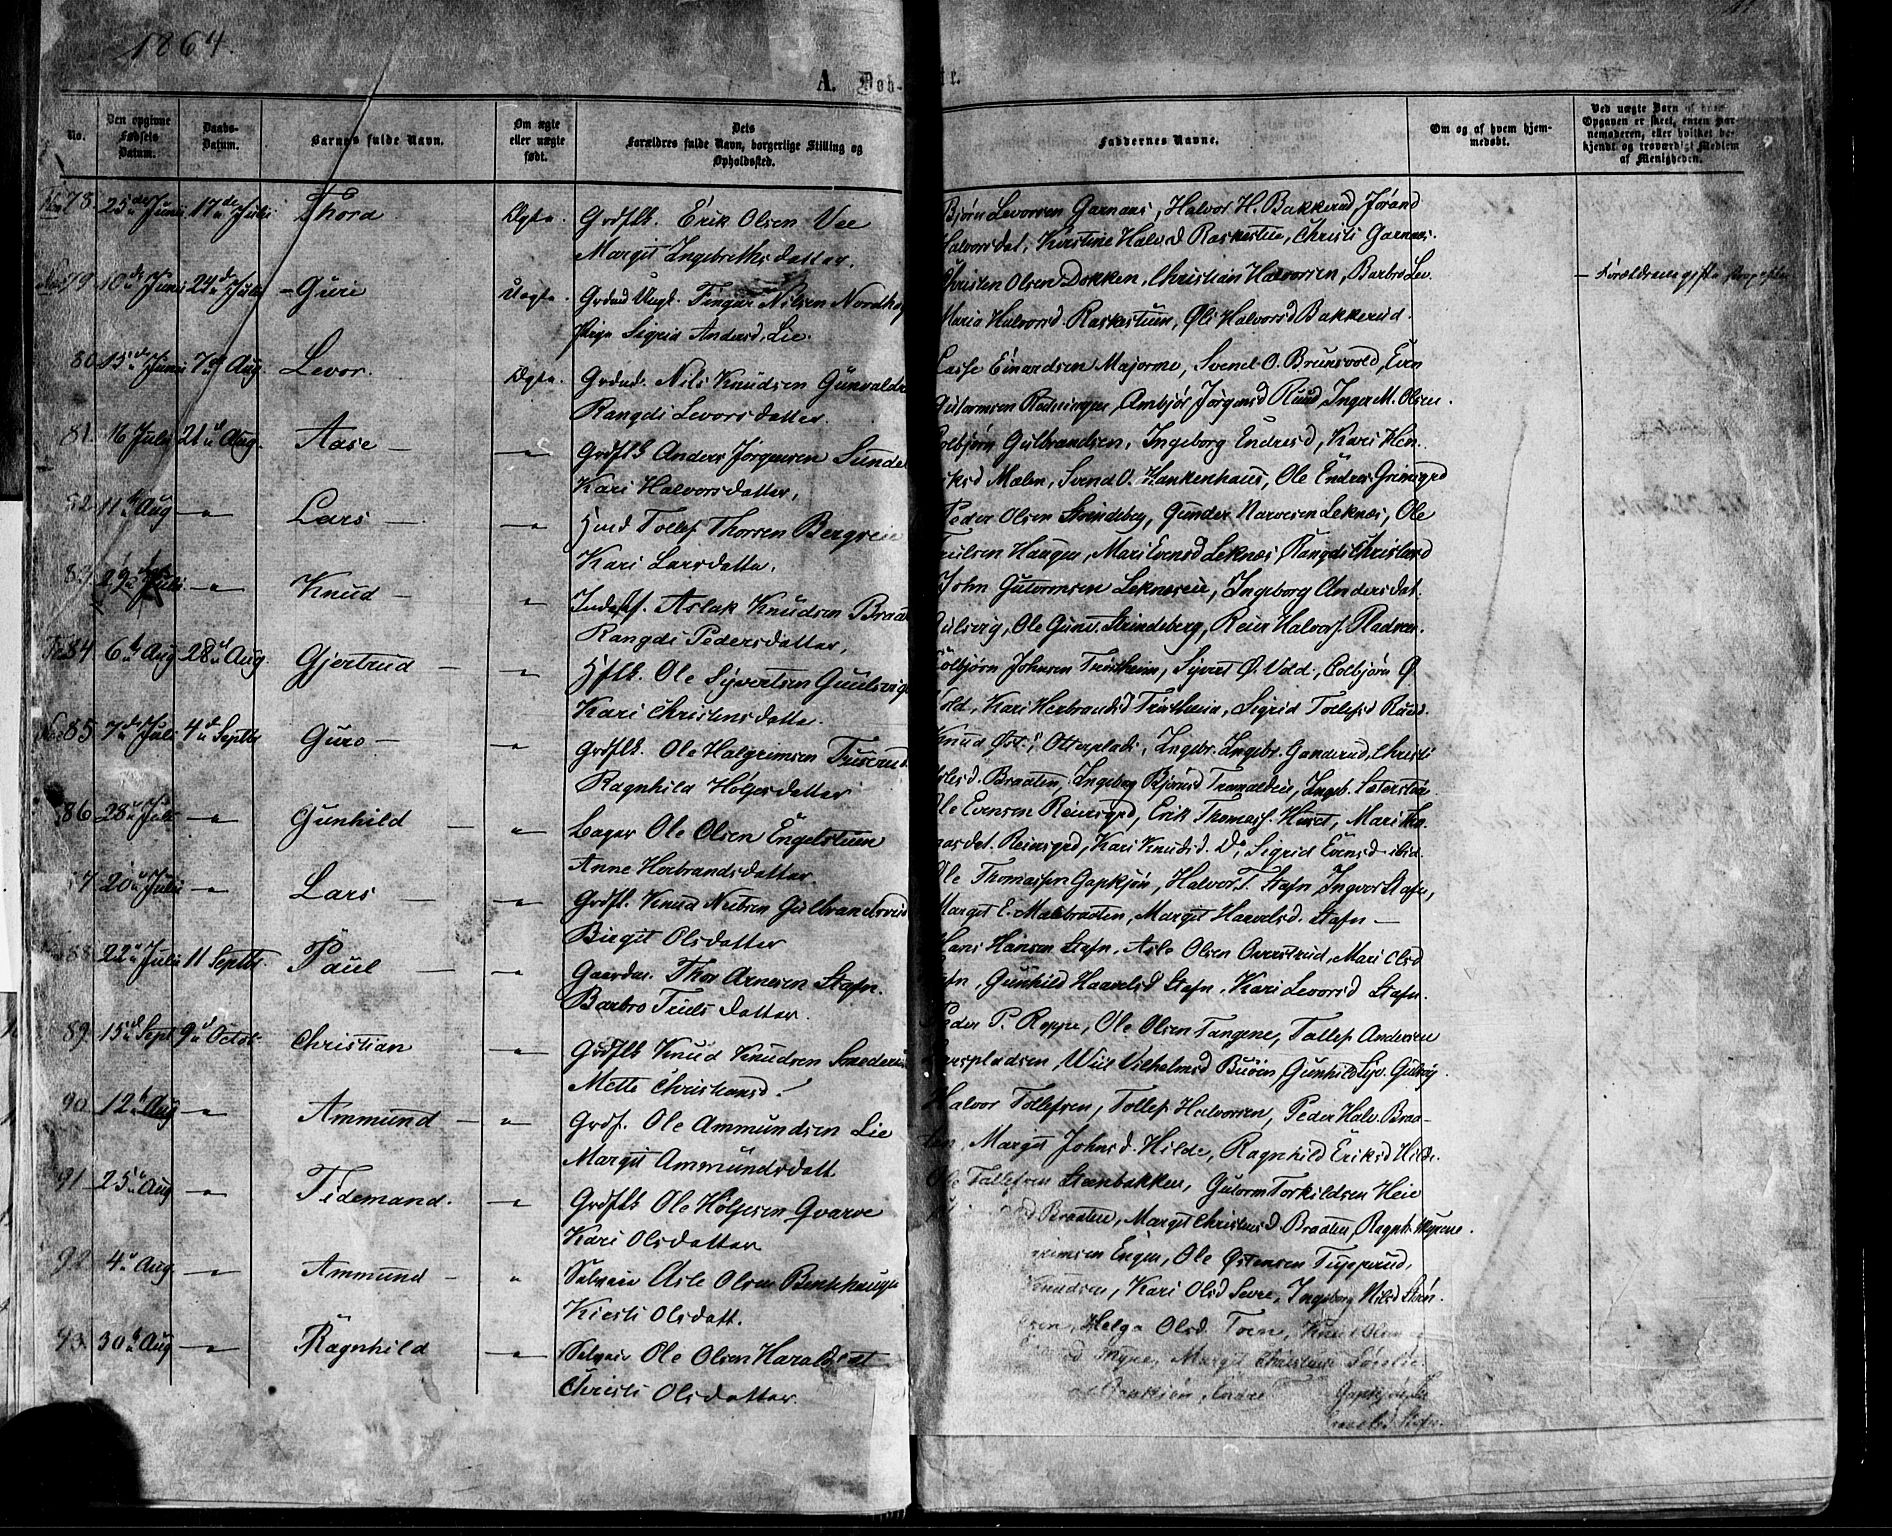 1864.
A. Døb- te.
No.
Den opgivne Fødsels Datum.
Daabs-Datum.
Barnets fulde Navn.
Om ægte eller uægte født.
Dets Forældres fulde Navn, borgerlige Stilling og Opholdssted.
Faddernes Navne.
Om og af hvem hjemmedøbt.
Ved uægte Børn af hvem Opgaven er skeet, enten Barnemoderen, eller hvilket bekjendt og troværdigt Medlem af Menigheden.
78. 25de Juni 17de Juli Thord Ægte. Grdflk. Erik Olsen Vee
Margit Ingebrethsdatter.
Bjørn Levorsen Garnaas, Halvor H. Bakkerud, Jørand
Halvorsdat, Kirstine Halvd Raskestue, Christi Garnaas.
79 10de Juni 24de Juli Guri Uægte. Grdmd Ungk. Fingar Nilsen Nordhog
Pige Sigrid Andersd. Lie.
Christen Olsen Dokken, Christian Halvorsen, Barbro Lev.
Maria Halvorsd. Raskestuen, Oli Halvorsd Bakkerud.
80 15de Juni 7de Aug. Levor. Ægte. Grdmd. Nils Knudsen Gunvaldr
Rangdi Levorsdatter.
Lasse Einardsen Majorme, Svend O. Brunsvold, Even
Gutormsen Rødningen, Ambjør Jørgensd Ruud, Inger M. Olsen.
81. 16 Juli 21de Aug. Aase Grdflk Anders Jørgensen Sunde
Kari Halvorsdatter,
Colbjørn Gulbrandsen, Ingeborg Endresd, Kari Hen
riksd Mælen, Svend O. Hankenhaus, Ole Endres. Grimsgrd
82 11te Aug Lars Hmd Tollef Thorsen Bergseie
Kari Larsdatter.
Peder Olsen Strindeberg, Gunder Narvesen Leknæs, Ole
Trulsen Haugen, Mari Evensd Leknæs, Rangdi Christensd
83 29de Juli Knud Inderst. Aslak Knudsen Braa
Rangdi Pedersdatter,
John Gutormsen Leknæseie, Ingeborg Andersdat.
Gulsvig, Ole Gunv. Strindeberg, Reier Halvors.
84 6te Aug 28de Aug. Gjertrud Hflk. Ole Syvertsen Gulsvig
Kari Christensdatte.
Colbjørn Johnsen Trostheim, Syvert O. Vold, Colbjørn O
Vold, Kari Herbrandsd Trostheim, Sigrid Tollefsd Ruud.
85 7de Juli 4de Septbr Guro Grdflk. Ole Halgrimsen Truserud
Ragnhild Holgesdatter
Knud Østs. Otterplads, Ingebr. Ingebr. Ganderud, Christi
Nilsd. Braaten, Ingeborg Bjørnsd Tromalden, Ingeb. Sæterstøe
86 28de Juli Gunhild Bager Ole Olsen Engelstuen
Anne Herbrandsdatter.
Ole Evensen Reinsgrd, Erik Thomass. Hiret, Mari Tho
masdat. Reinsgrd, Kari Knudsd. Do, Sigrid Evensd ibid.
87 20de Juli Lars Grdflk. Knud Nilsen Gulbrandseie
Birgit Olsdatter
Ole Thomassen Gapkjøn, Halvor T. Stafn, Ingvor Stafn,
Margit E. Mælbraaten, Margit Haavelsd. Stafn
88 22de Juli 11 Septbr. Paul Gaardm. Thor Arnesen Stafn.
Barbro Trulsdatter.
Hans Hansen Stafn, Asle Olsen Averstrud, Mari Olsd
Stafn, Gunhild Haavelsd Stafn, Kari Levorsd Stafn.
89 15de Sept 9de Octob. Christian Grdflk Knud Knudsen Smederud
Mette Christiansd.
Peder P. Roppe, Ole Olsen Tangene, Tollef Andersen
Larspladsen, Wiil Vilhelmsd Buøen, Gunhild Syv. Gulsvig.
90 12te Aug Ammund Grdf. Ole Ammundsen Lie
Margit Ammundsdatt
Halvor Tollefsen, Tollef Halvorsen, Peder Halv. Braa-
ten, Margit Johnsd Hilde, Ragnhild Eriksd Hilde.
91 25de Aug Tidemand. Grdflk Ole Holgesen Qvarve
Kari Olsdatter
Ole Tollefsen Steenbakken, Gutorm Torkildsen Heie
Braaten, Margit Christensd Braaten, Ragnh. Myrene.
92 4de Aug. Ammund Selveier Asle Olsen Benthaugen
Kiersti Olsdatt.
grimsen Engen, Ole Østensen Tupperud,
Knudsen, Kari Olsd Sevre, Ingeborg Nilsd Støn.
93. 30te Aug Ragnhild Selveier Ole Olsen Haraldset
Christi Olsdatter.
Helge Olsd. Toen, Knud Olsen
Myre, Margit Christens Sørslie.
Gapkjøn, Endre Gapkjøn
Stafn.
Forældrene gifte